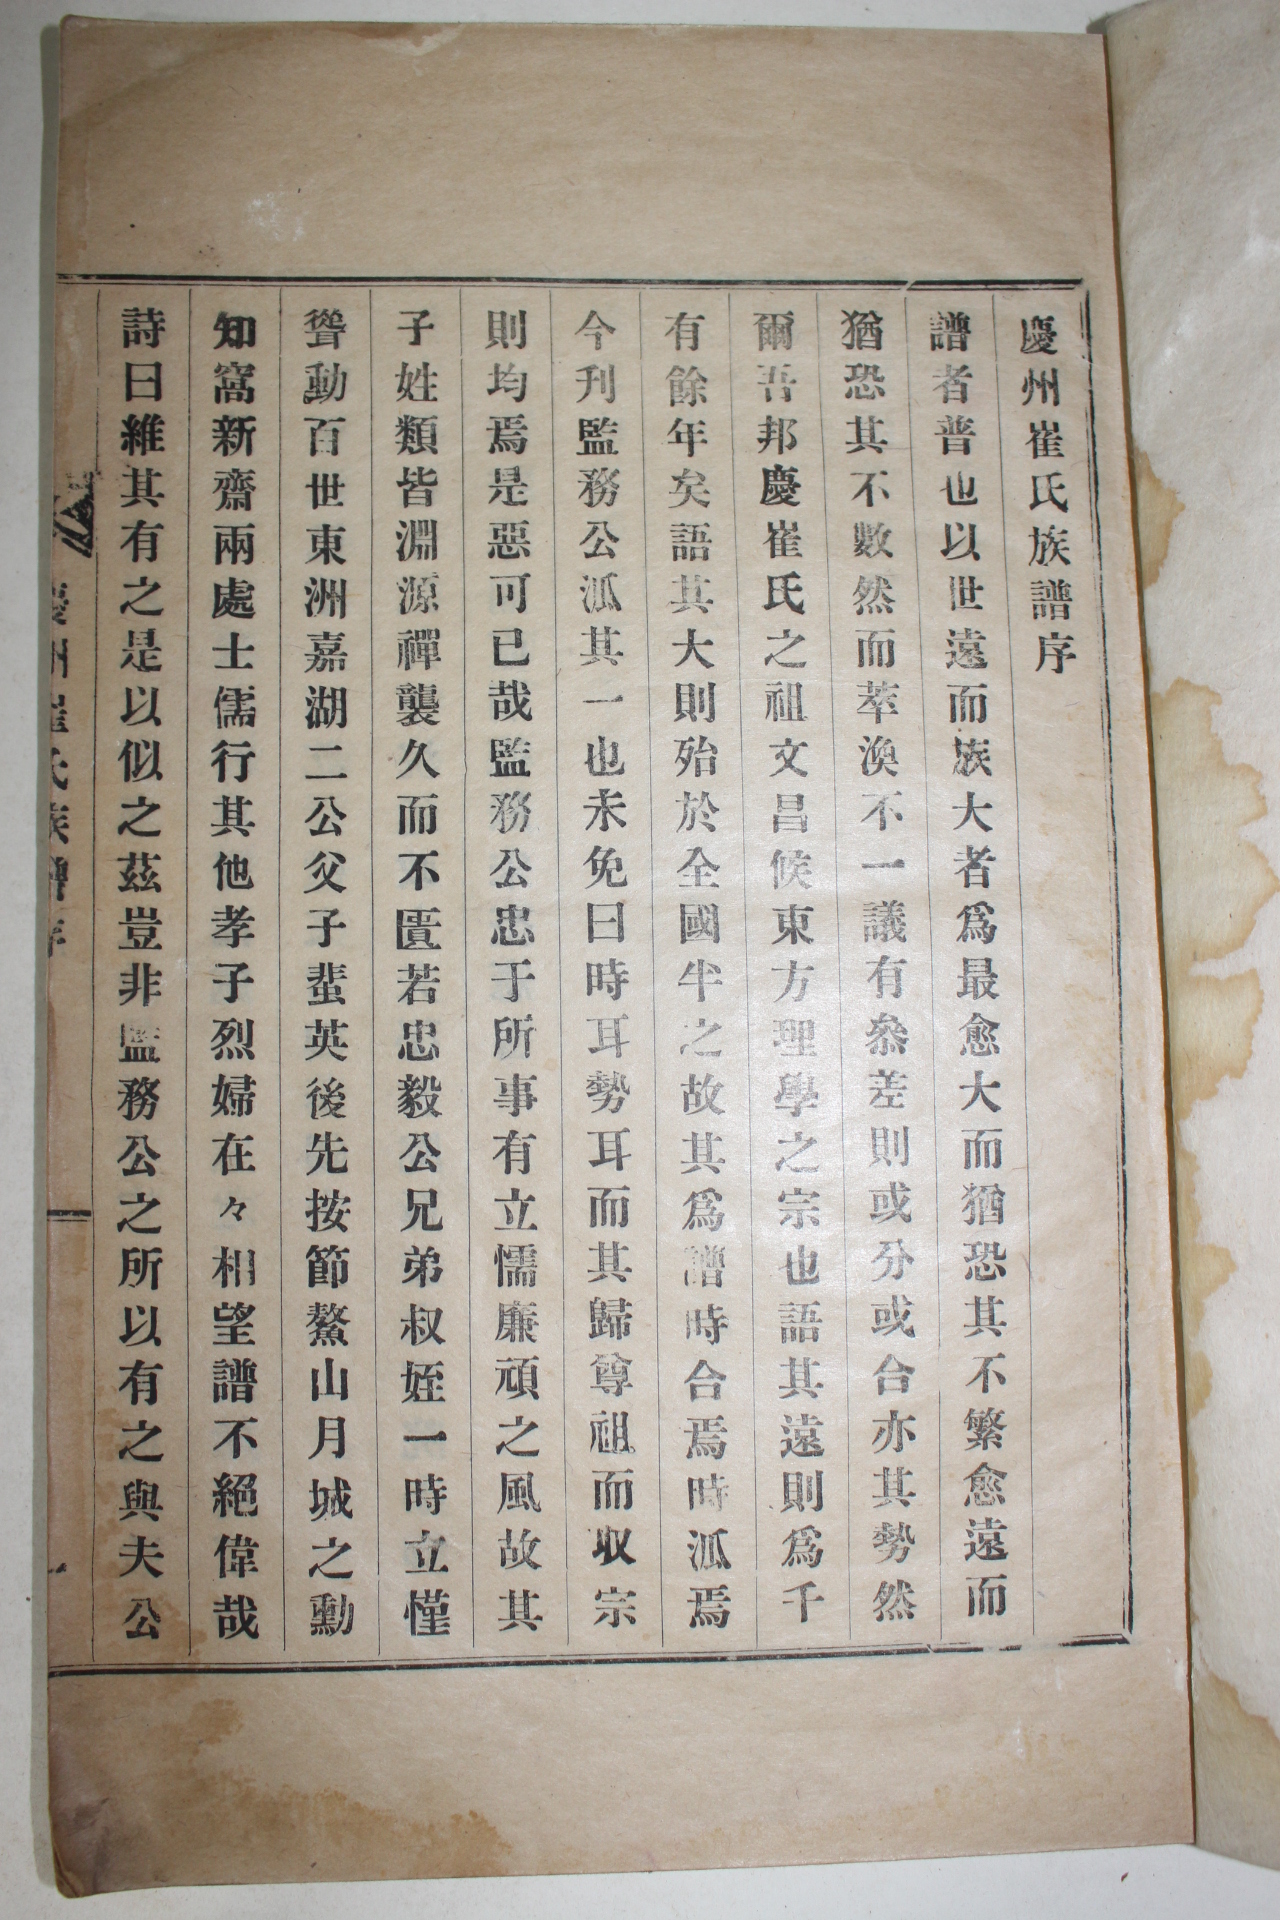 慶州崔氏族譜序
譜者普也以世遠而族大者爲最愈大而猶恐其不繁愈遠而
猶恐其不數然而萃渙不一議有叅差則或分或合亦其勢然
爾吾邦慶崔氏之祖文昌候東方理學之宗也語其遠則爲千
有餘年矣語其大則殆於全國半之故其爲譜時合焉時泒焉
今刊監務公泒其一也未免曰時耳勢耳而其歸尊祖而収宗
則均焉是惡可已哉監務公忠于所事有立懦廉頑之風故其
子姓類皆淵源禪襲久而不匱若忠毅公兄弟叔姪一時立慬
聳動百世東洲嘉湖二公父子蜚英後先按節鰲山月城之勳
知窩新齋兩處士儒行其他孝子烈婦在々相望譜不絕偉哉
詩曰維其有之是以似之茲豈非監務公之所以有之與夫公
慶州崔氏族譜序